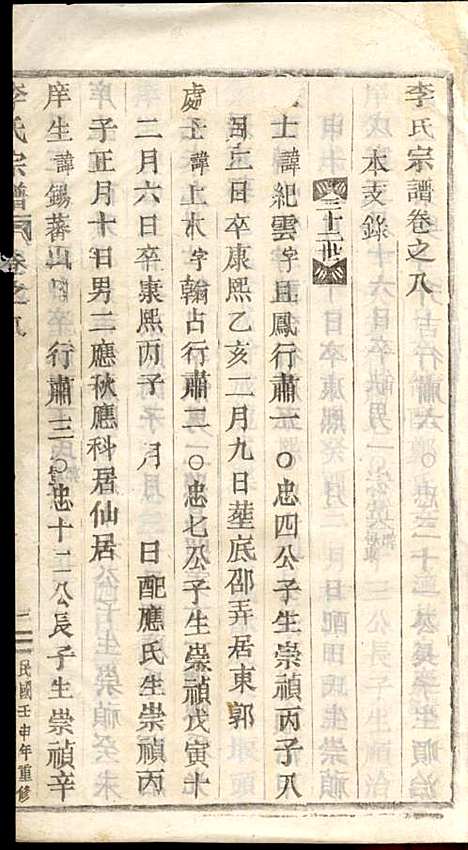 李氏宗譜卷之八
本支錄
三十二世
士諱紀雲字且鳳行蕭一〇忠四公子生崇禎丙子八
月三日卒康熙乙亥二月九日塟底邵弄居東郭
處士諱上林字翰占行蕭二〇忠七公子生崇禎戊寅十
二月六日卒康熙丙子 月 日配應氏生崇禎丙
子正月十日男二應秋應科居仙居
庠生諱錫蕃 行蕭三〇忠十二公長子生崇禎辛
李氏宗譜 卷之八
二 民國壬申年重修